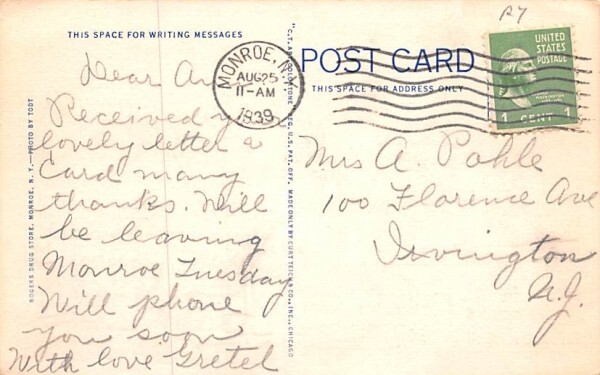 R7
THIS SPACE FOR WRITING MESSAGES
Dear
Received
lovely letter &
Card many
thanks. Will
be leaving
Monroe Tuesday
Will phone
you soon
With love Gretel
ROGERS DRUG STORE, MONROE, N. Y.—PHOTO BY TODT
"C.T. ART-COLORTONE" REG. U.S. PAT. OFF. MADE ONLY BY CURT TEICH & CO., INC., CHICAGO
MONROE, N.Y.
AUG 25
11-AM
1939
POST CARD
THIS SPACE FOR ADDRESS ONLY
UNITED
STATES
POSTAGE
1 CENT 1
Mrs A. Pohle
100 Florence Ave
Irvington
N.J.